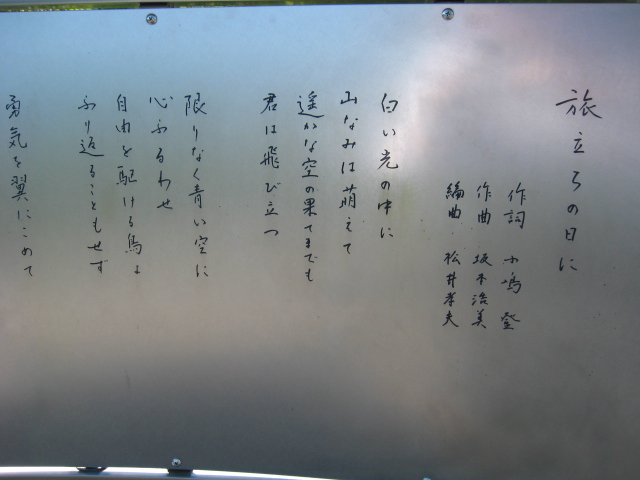 旅立ちの日に
作詞 小嶋 登
作曲 坂本浩美
編曲 松井孝夫
白い光の中に
山なみは萌えて
遥かな空の果てまでも
君は飛び立つ
限りなく青い空に
心ふるわせ
自由を駆ける鳥よ
ふり返ることもせず
勇気を翼にこめて